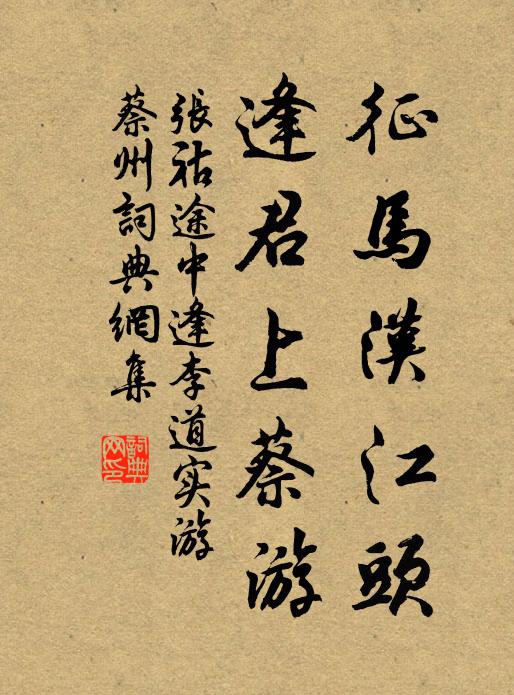 征馬漢江頭
逢君上蔡游
張祜途中逢李道实游
蔡州詞典網集
詞典网印